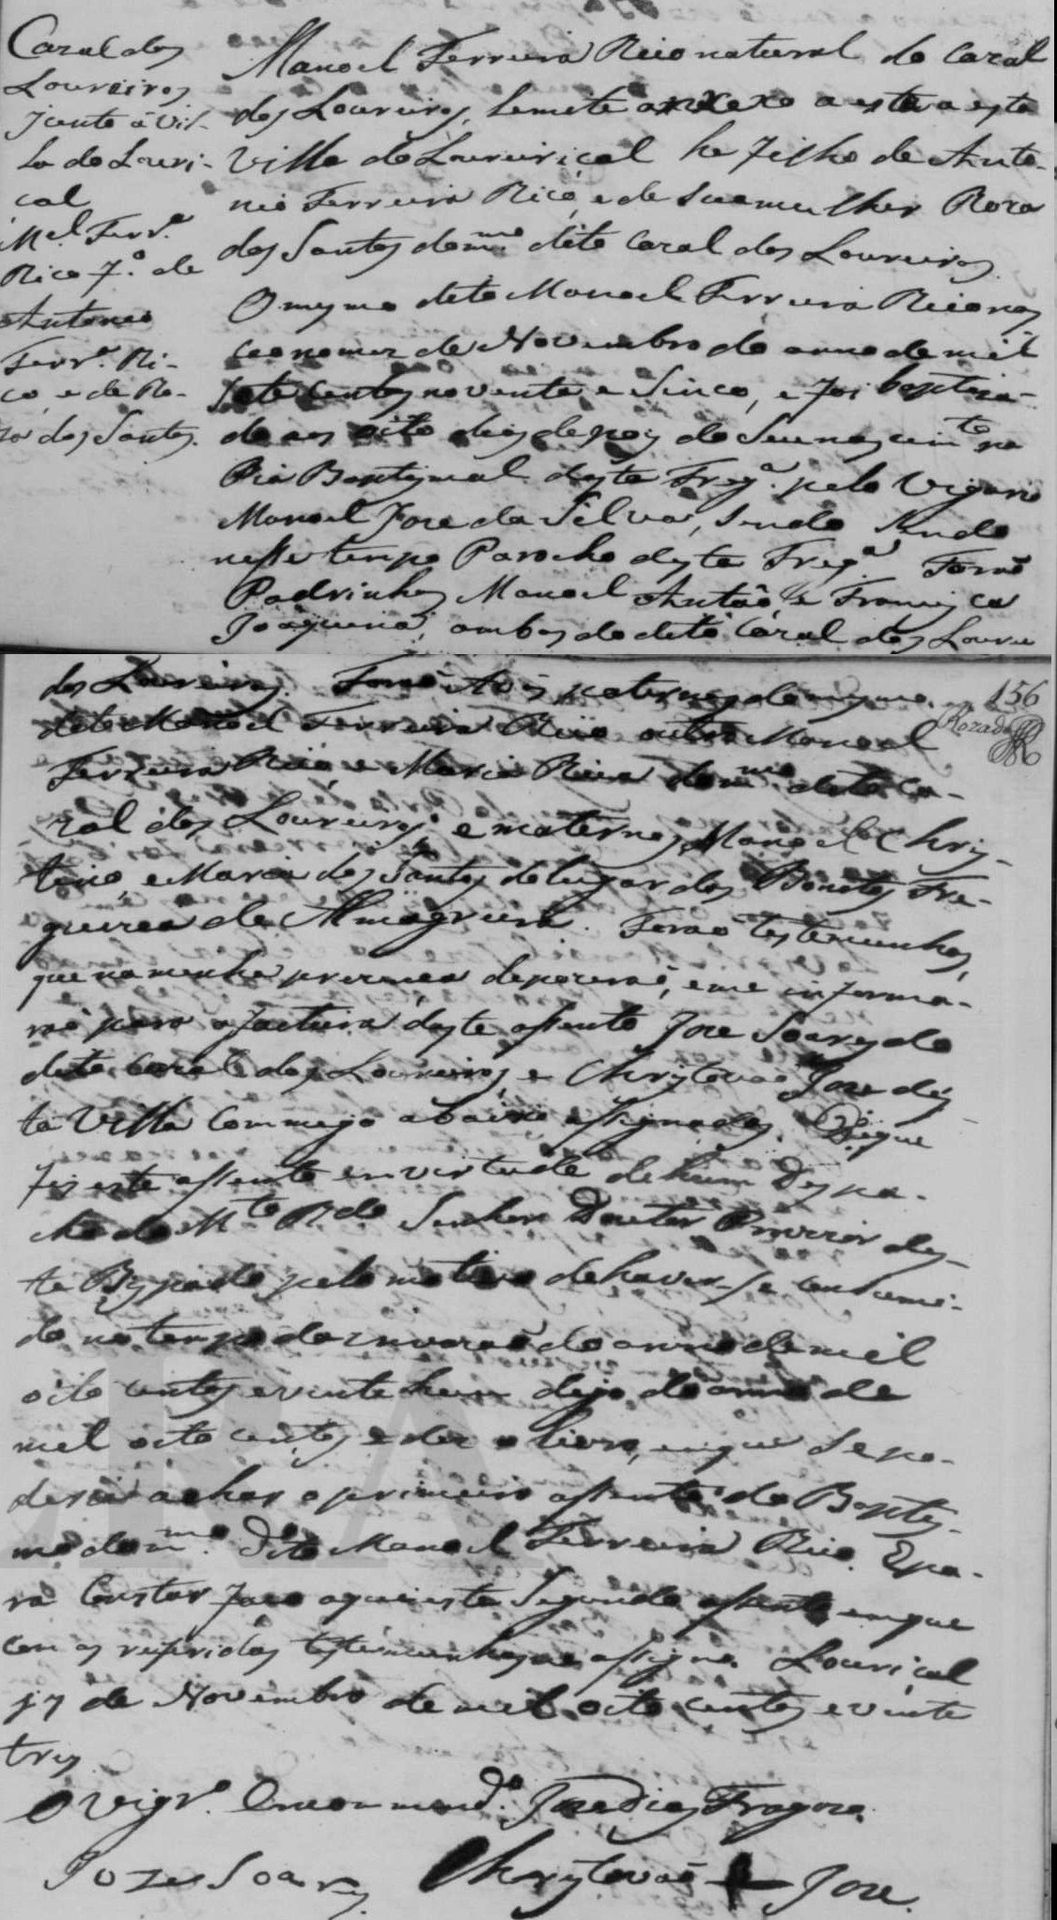 Cazal dos
Loureiros
junto á Vil-
la do Louri-
cal
M.el Ferr.a
Rico f.o de
Antonio
Ferr.a Ri-
co e de Ro-
za dos Santos.
Manoel Ferreira Rico natural do Cazal
dos Loureiros, lemite annexo a esta a esta
Villa do Lourical he filho de Anto-
nio Ferreira Rico, e de sua mulher Roza
dos Santos do m.mo dito Cazal dos Loureiros.
O mesmo dito Manoel Ferreira Rico nas
ceo no mez de Novembro do anno de mil
sete centos noventa e sinco, e foi baptiza-
do aos oito dias depois do seu nascim.to na
Pia Baptismal desta Freg.a pelo Vigario
Manoel Joze da Silva, sendo sendo
nesse tempo Parocho desta Freg.a Forão
Padrinhos Manoel Antão, e Francisca
Joaquina, ambos do dito Cazal dos Lourei
dos Loureiros. Forão Avós paternos do mesmo
dito Manoel Ferreira Rico outro Manoel
Ferreira Rico, e Maria Rica do m.mo dito Ca-
zal dos Loureiros, e maternos Manoel Chris-
tino, e Maria dos Santos do lugar dos Bonitos Fre-
guezia de Almagreira. Forão testemunhas,
que na minha prezença depozerão, e me informa-
rão para a factura deste assento Joze Soares do
dito Cazal dos Loureiros, e Christovão Joze des-
ta Villa commigo abaixo assignados. Digo que
fiz este assento em virtude de hum Despa-
cho do M.to R.do Senhor Doutor Provizor des-
te Bispado pelo motivo de haver-se consumi-
do no tempo da invazão do anno de mil
oito centos e vinte hum digo do anno de
mil oito centos e dez o livro, em que se po-
deria achar o primeiro assento do Baptis-
mo do m.mo dito Manoel Ferreira Rico. E pa-
ra constar faço aqui este segundo assento em que
com as referidas testemunhas me assigno. Louriçal
17 de Novembro de mil oito centos e vinte
tres.
O Vigr.o Encommend.o Joze Dias Fragozo.
Joze Soares Christovão + Joze.
156
Rozado